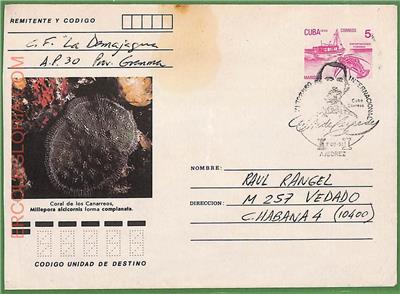 REMITENTE Y CODIGO
C.F. "La Demajagua
A.P. 30 Prov. Granma
CUBA CORREOS 5
INTERNACIONAL
Cuba
Correos
AJEDREZ
Coral de los Canarreos,
Millepora alcicornis forma complanata.
NOMBRE: RAUL RANGEL
DIRECCION: M 257 VEDADO
C. HABANA 4 (10400)
CODIGO UNIDAD DE DESTINO